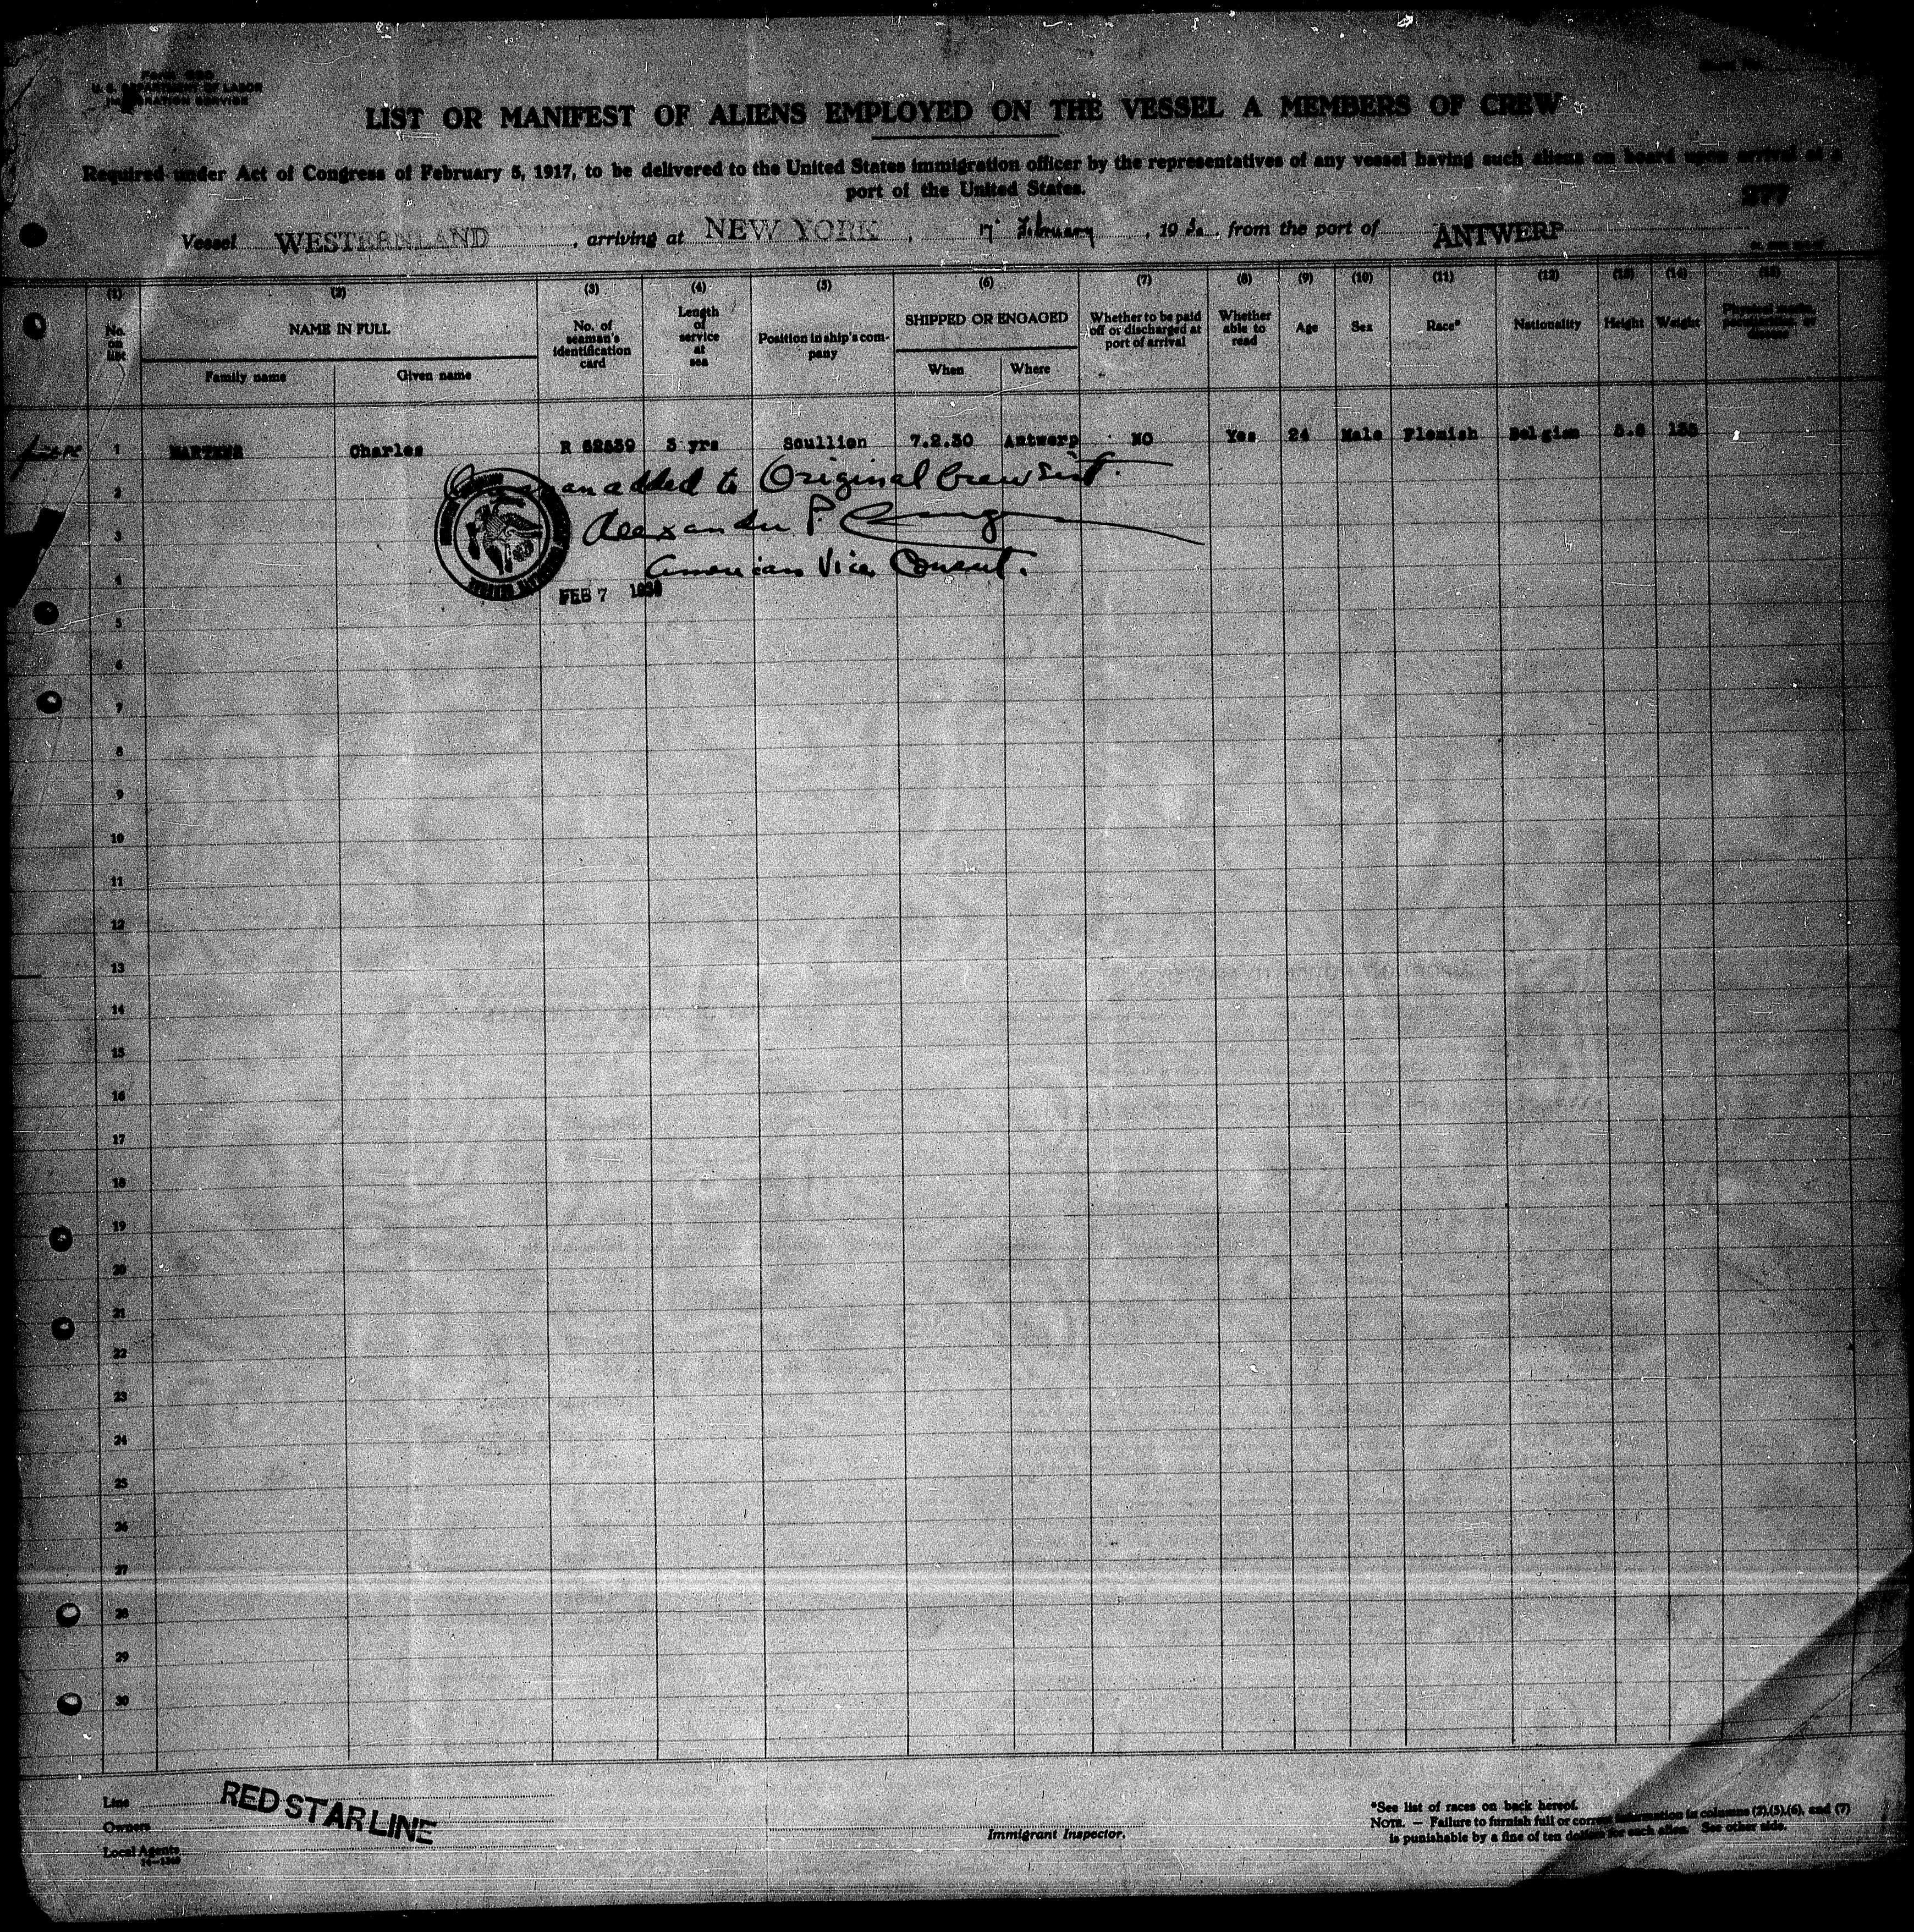 Form 680
U. S. DEPARTMENT OF LABOR
IMMIGRATION SERVICE
LIST OR MANIFEST OF ALIENS EMPLOYED ON THE VESSEL A MEMBERS OF CREW
Required under Act of Congress of February 5, 1917, to be delivered to the United States immigration officer by the representatives of any vessel having such aliens on board upon arrival at a
port of the United States.
377
Vessel WESTERNLAND, arriving at NEW YORK, 17 February, 1930, from the port of ANTWERP
(1) (2) (3) (4) (5) (6) (7) (8) (9) (10) (11) (12) (13) (14) (15)
No. on list
NAME IN FULL
Family name Given name
No. of seaman's identification card
Length of service at sea
Position in ship's company
SHIPPED OR ENGAGED
When Where
Whether to be paid off or discharged at port of arrival
Whether able to read
Age
Sex
Race*
Nationality
Height
Weight
Physical marks,
1 MARTENS Charles R 62539 3 yrs Scullion 7.2.30 Antwerp NO Yes 24 Male Flemish Belgian 5.6
an added to Original Crew List.
Alexander P.
American Vice Consul.
FEB 7 1930
2
3
4
5
6
7
8
9
10
11
12
13
14
15
16
17
18
19
20
21
22
23
24
25
26
27
28
29
30
Line RED STAR LINE
Owners
Local Agents
14—1240
Immigrant Inspector.
*See list of races on back hereof.
NOTE. — Failure to furnish full or correct information in columns (2),(5),(6), and (7)
is punishable by a fine of ten dollars for each alien. See other side.